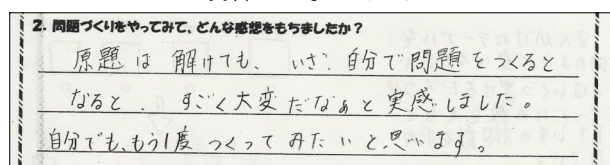 2. 問題づくりをやってみて、どんな感想をもちましたか？
原題は解けても、いざ、自分で問題をつくると
なると、すごく大変だなぁと実感しました。
自分でも、もう1度つくってみたいと思います。